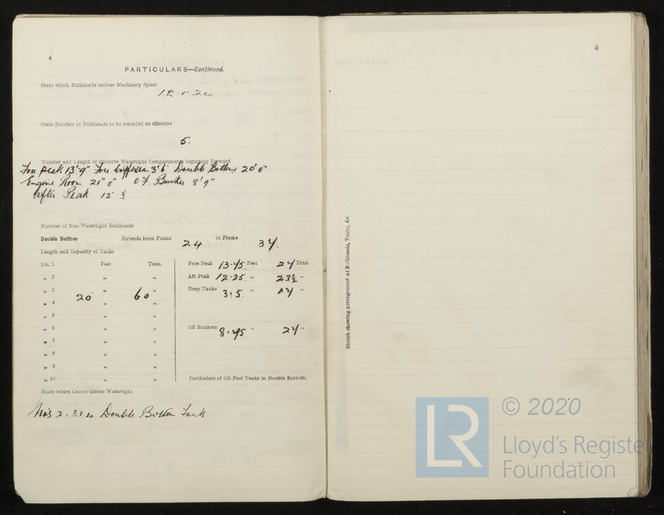 4
PARTICULARS—Continued.
State which Bulkheads enclose Machinery Space
State Number of Bulkheads to be recorded as effective
5.
Number and Length of effective Watertight Compartments beginning Forward
Fore Peak 13'9" Fore Cofferdam 3'6" Double Bottom 20'0"
Engine Room 21'0" O.F. Bunker 8'9"
After Peak 12'3
Number of Non-Watertight Bulkheads
Double Bottom Extends from Frame 24 to Frame 34.
Length and Capacity of Tanks
No. 1 Feet Tons.
" 2 " "
" 3 20 " 60 "
" 4 " "
" 5 " "
" 6 " "
" 7 " "
" 8 " "
" 9 " "
" 10 " "
Fore Peak 13.75 Feet 24 Tons.
Aft Peak 12.25 " 23½ "
Deep Tanks 3.5 "
Oil Bunkers 8.75 " 24 "
Particulars of Oil Fuel Tanks in Double Bottom.
State where Centre Girder Watertight
Double Bottom Tank
5
Sketch showing Arrangement of Bulkheads, Tanks, &c.
LR
© 2020
Lloyd's Register
Foundation